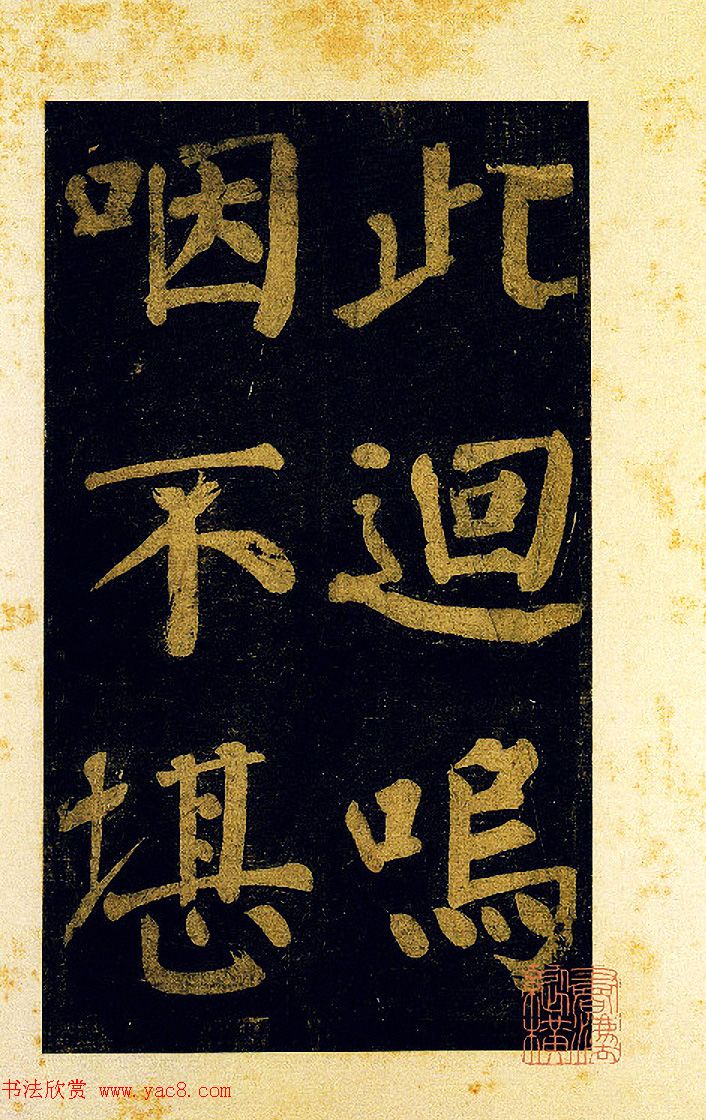 此迴嗚
咽不堪
书法欣赏 www.yac8.com